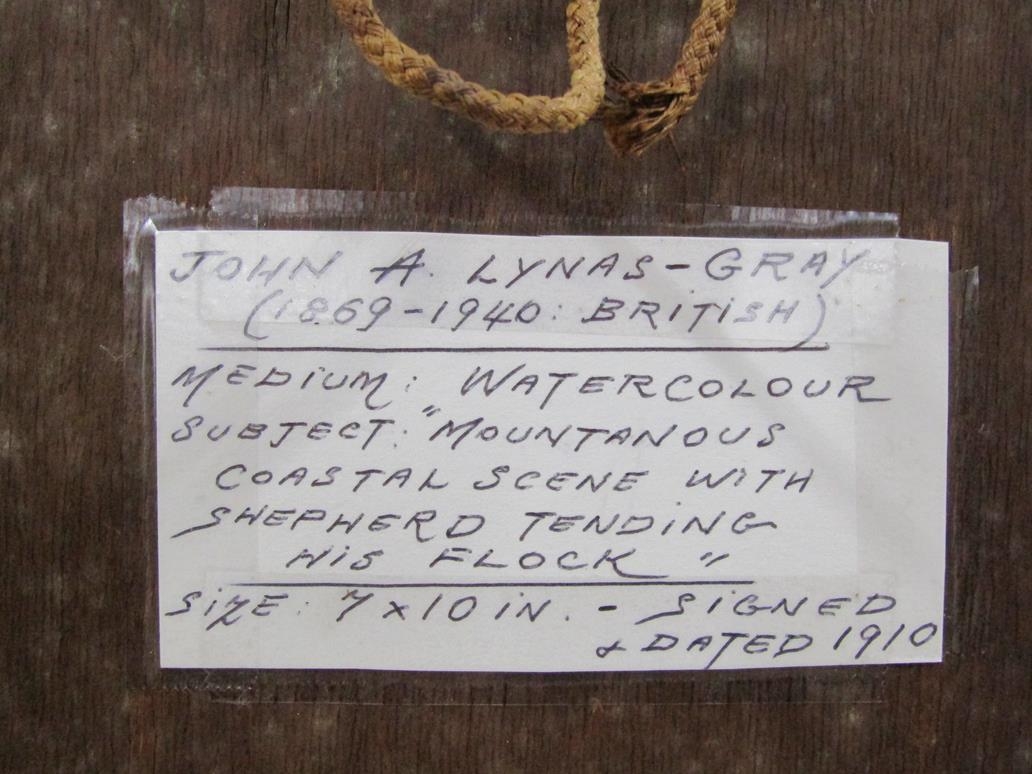 JOHN A. LYNAS-GRAY
(1869-1940: BRITISH)
MEDIUM: WATERCOLOUR
SUBJECT: "MOUNTANOUS
COASTAL SCENE WITH
SHEPHERD TENDING
HIS FLOCK"
SIZE: 7 x 10 IN. - SIGNED
& DATED 1910